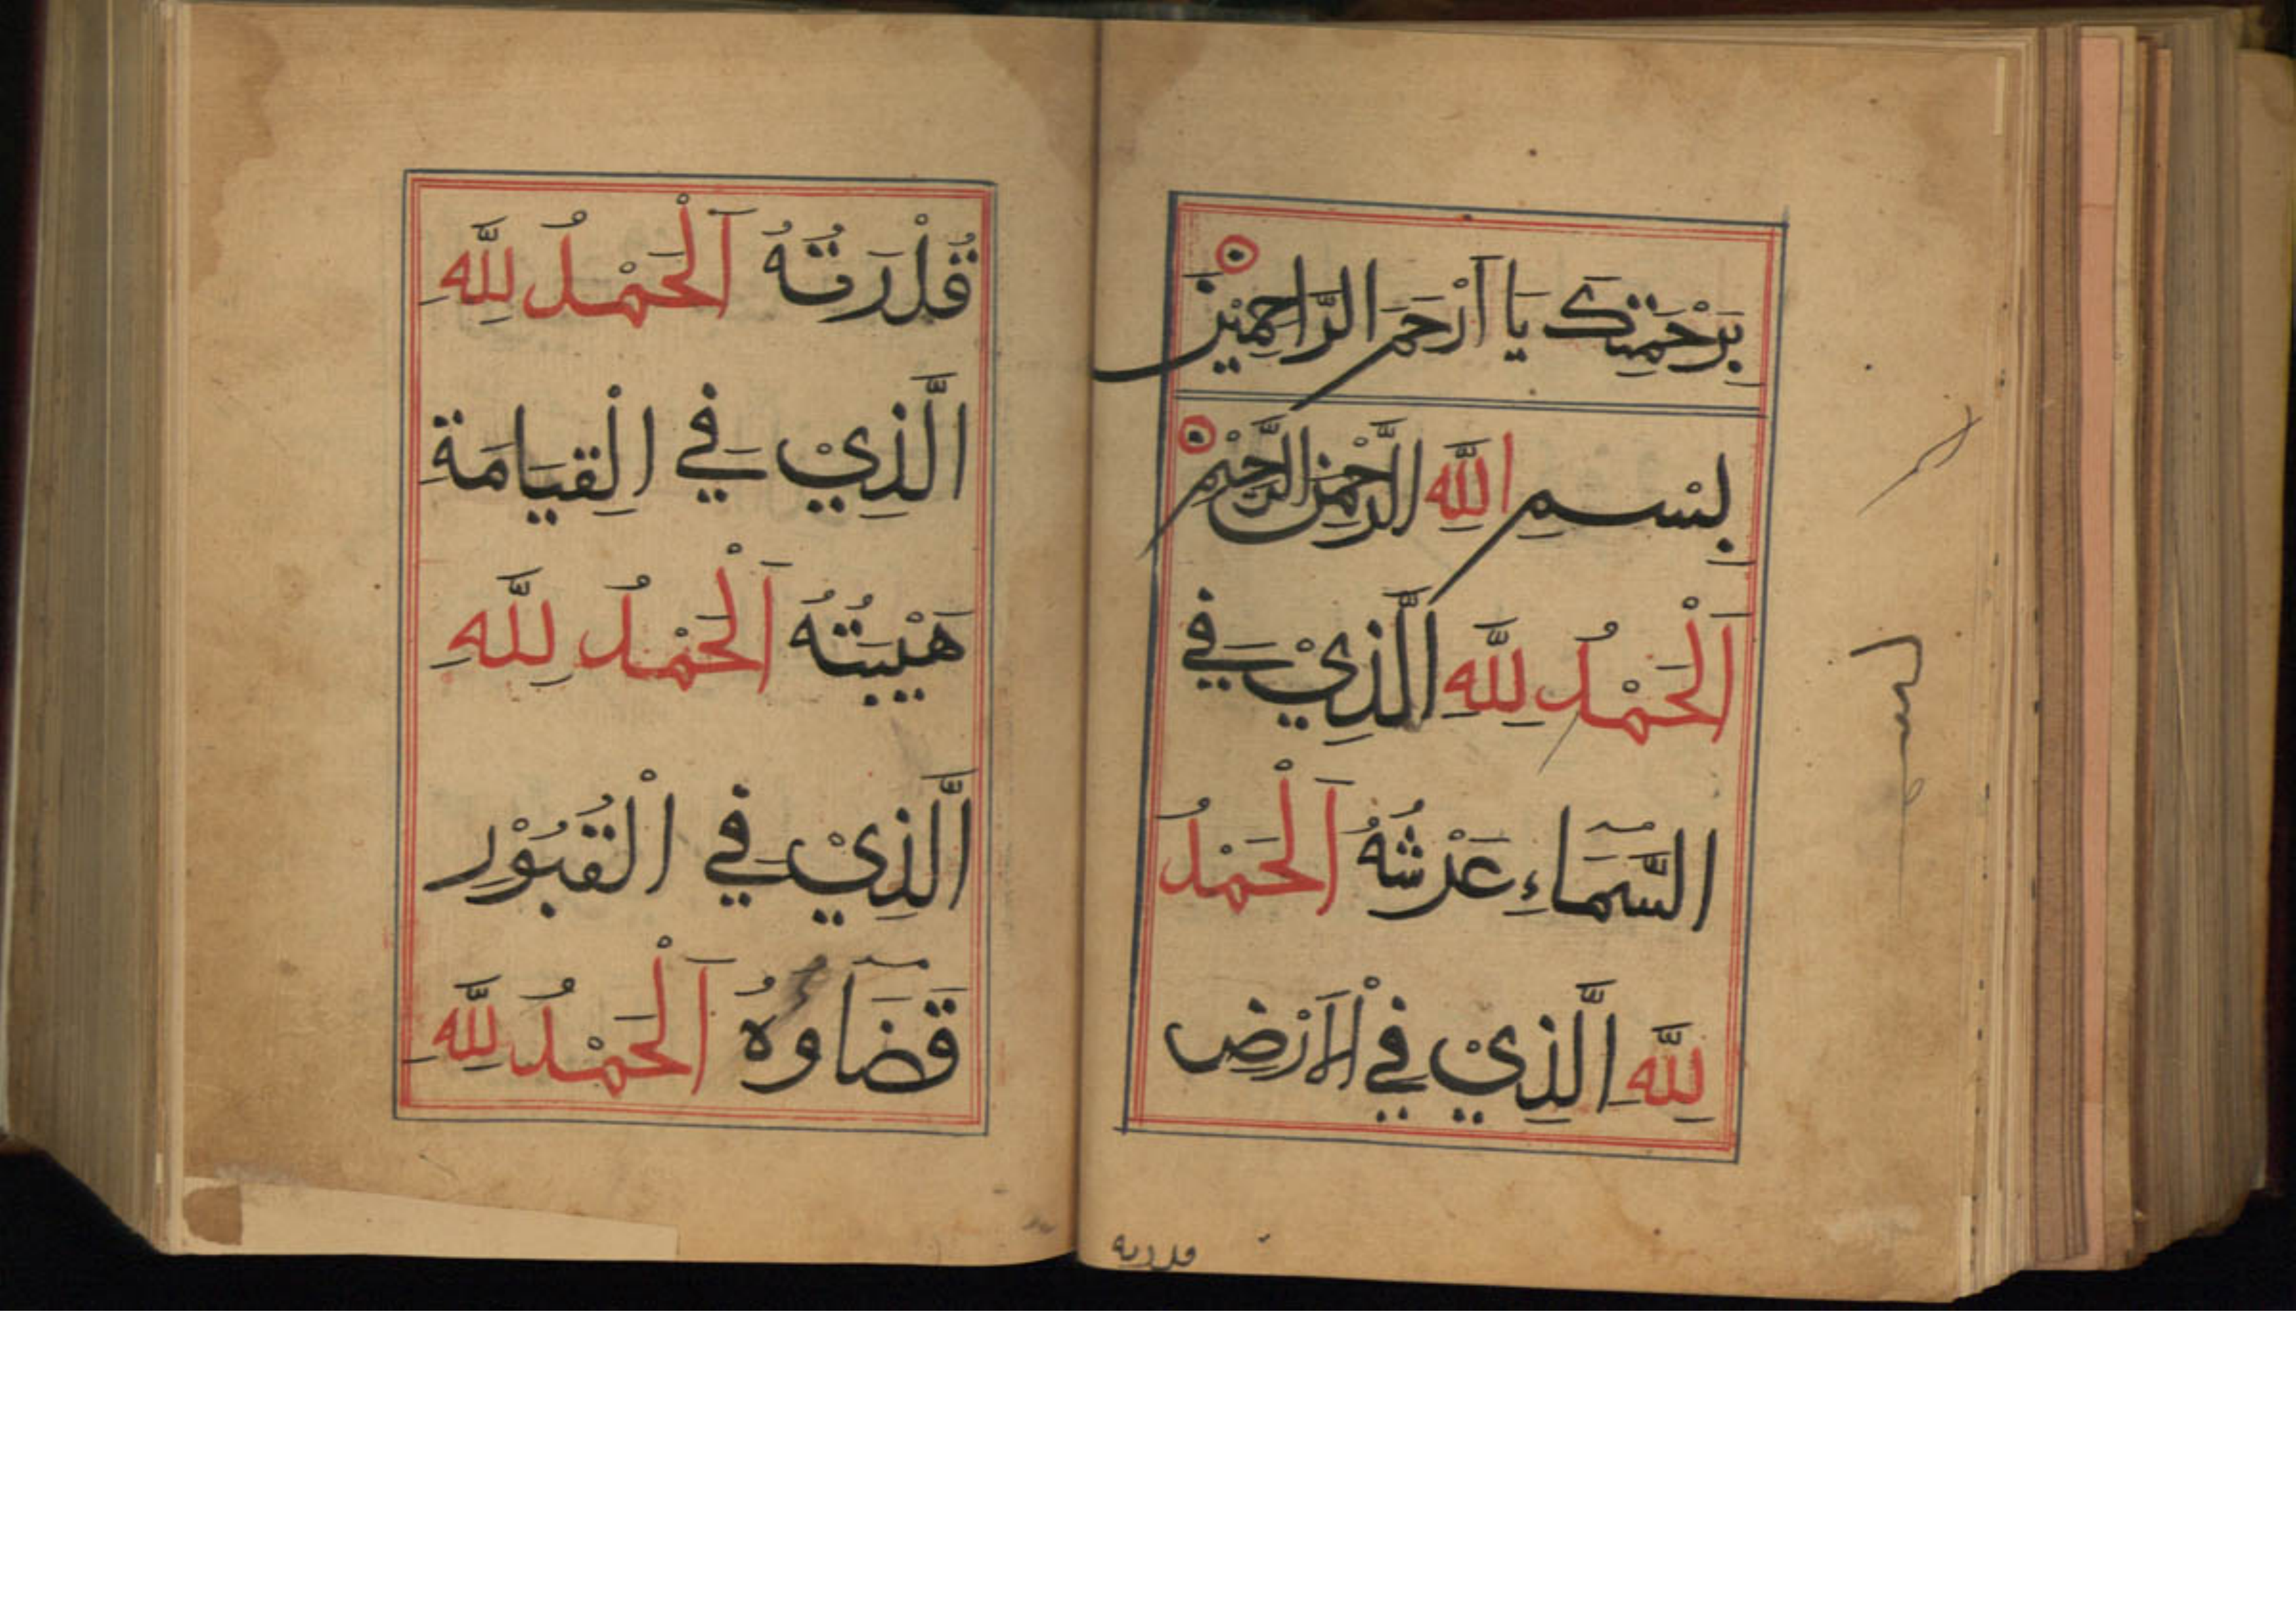 بِرَحْمَتِكَ يَا أَرْحَمَ الرَّاحِمِيْنَ
بِسْمِ اللّٰهِ الرَّحْمٰنِ الرَّحِيْمِ
اَلْحَمْدُ لِلّٰهِ الَّذِيْ فِي
السَّمَاءِ عَرْشُهُ اَلْحَمْدُ
لِلّٰهِ الَّذِيْ فِي الْاَرْضِ
قدرته
قُدْرَتُهُ اَلْحَمْدُ لِلّٰهِ
الَّذِيْ فِي الْقِيَامَةِ
هَيْبَتُهُ اَلْحَمْدُ لِلّٰهِ
الَّذِيْ فِي الْقُبُوْرِ
قَضَاؤُهُ اَلْحَمْدُ لِلّٰهِ